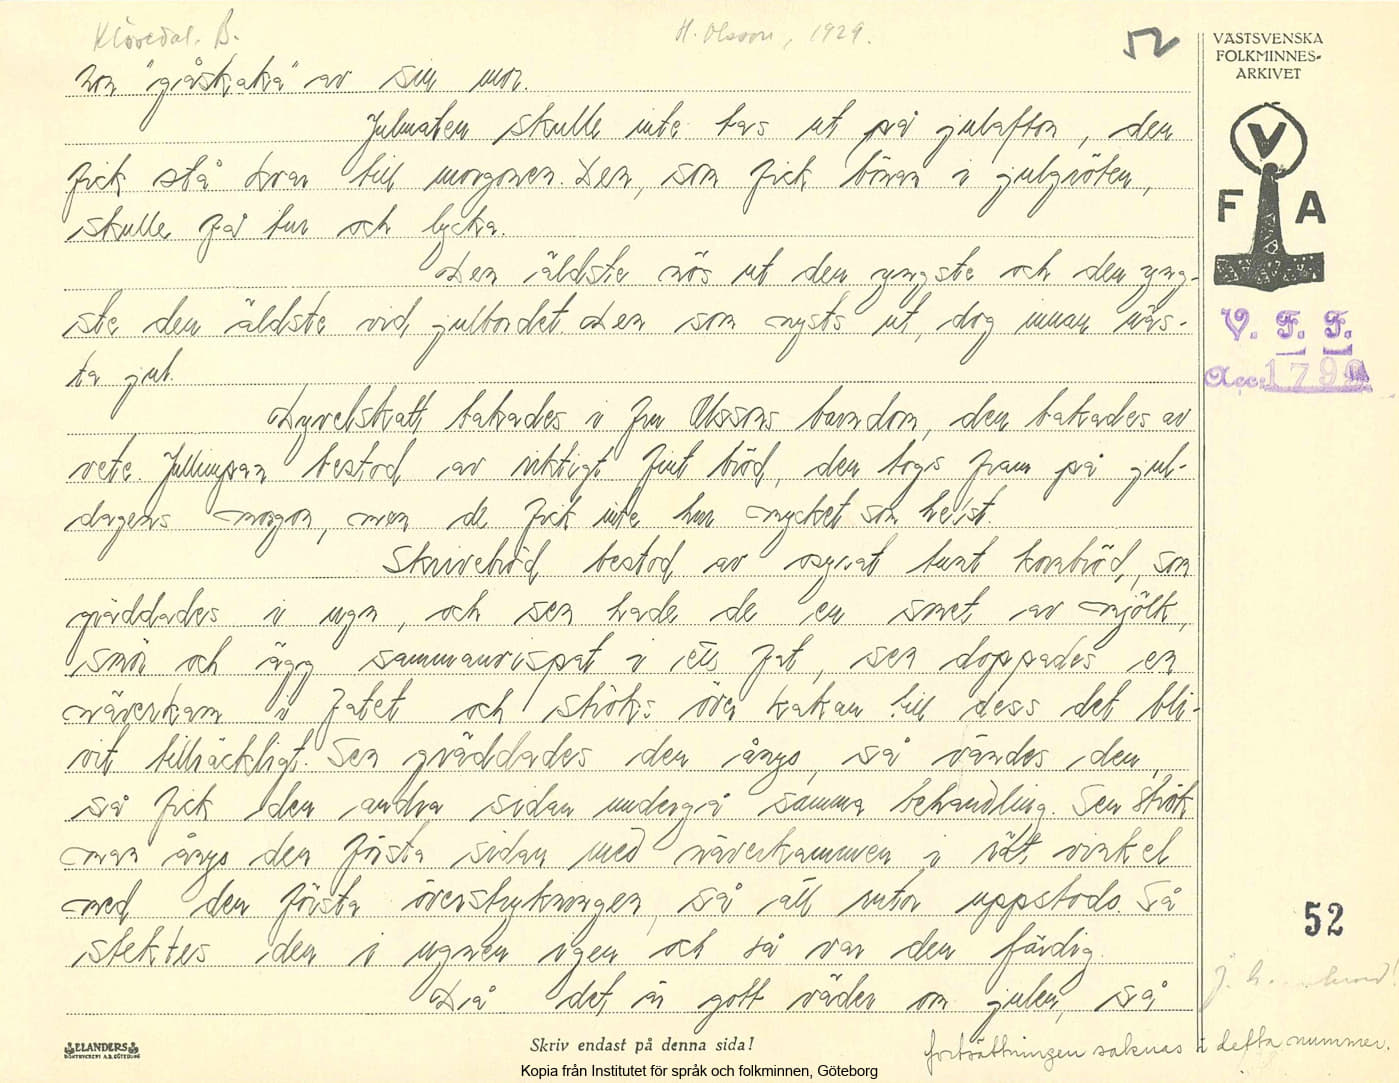 Klövedal. B.
H. Olsson, 1929.
52
VÄSTSVENSKA
FOLKMINNES-
ARKIVET
V
F A
V. F. F.
Acc: 1799
"gåskaka" av sin mor.
Julmaten skulle inte tas ut på julafton, den
fick stå kvar till morgonen. Den, som fick bönan i julgröten,
skulle få tur och lycka.
Den äldste nös ut den yngste och den yng-
ste den äldste vid julbordet. Den som nysts ut, dog innan näs-
ta jul.
Dyvelskatt bakades i fru Olssons barndom, den bakades av
vete. Jullimpan bestod av riktigt fint bröd, den togs fram på jul-
dagens morgon, men de fick inte hur mycket som helst.
Skrivebröd bestod av osyrat tunt kornbröd, som
gräddades i ugn, och sen hade de en smet av mjölk,
smör och ägg sammanvispat i ett fat, sen doppades en
näverkam i fatet och ströks över kakan till dess det bli-
vit tillräckligt. Sen gräddades den ånyo, så vändes den,
så fick den andra sidan undergå samma behandling. Sen strök
man ånyo den första sidan med näverkammen i rät vinkel
med den första överstrykningen, så att rutor uppstodo. Så
stektes den i ugnen igen och så var den färdig.
Då det är gott väder om julen, så
52
fortsättningen saknas i detta nummer.
ELANDERS
BOKTRYCKERI A.B. GÖTEBORG
Skriv endast på denna sida!
Kopia från Institutet för språk och folkminnen, Göteborg